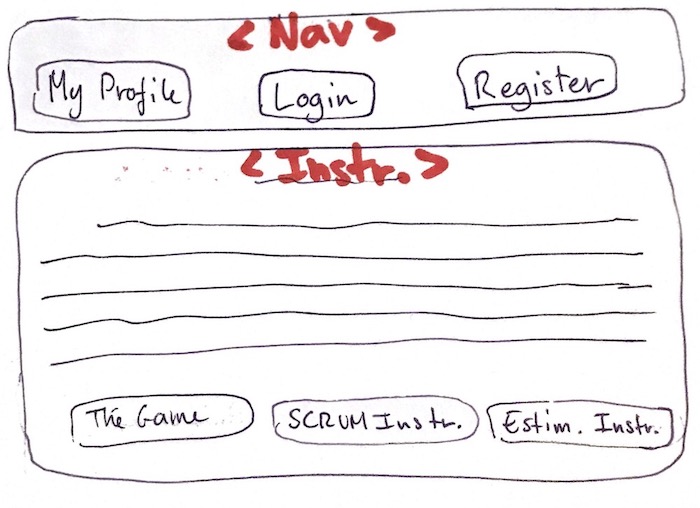 < Nav >
My Profile Login Register
< Instr. >
The Game SCRUM Instr. Estim. Instr.